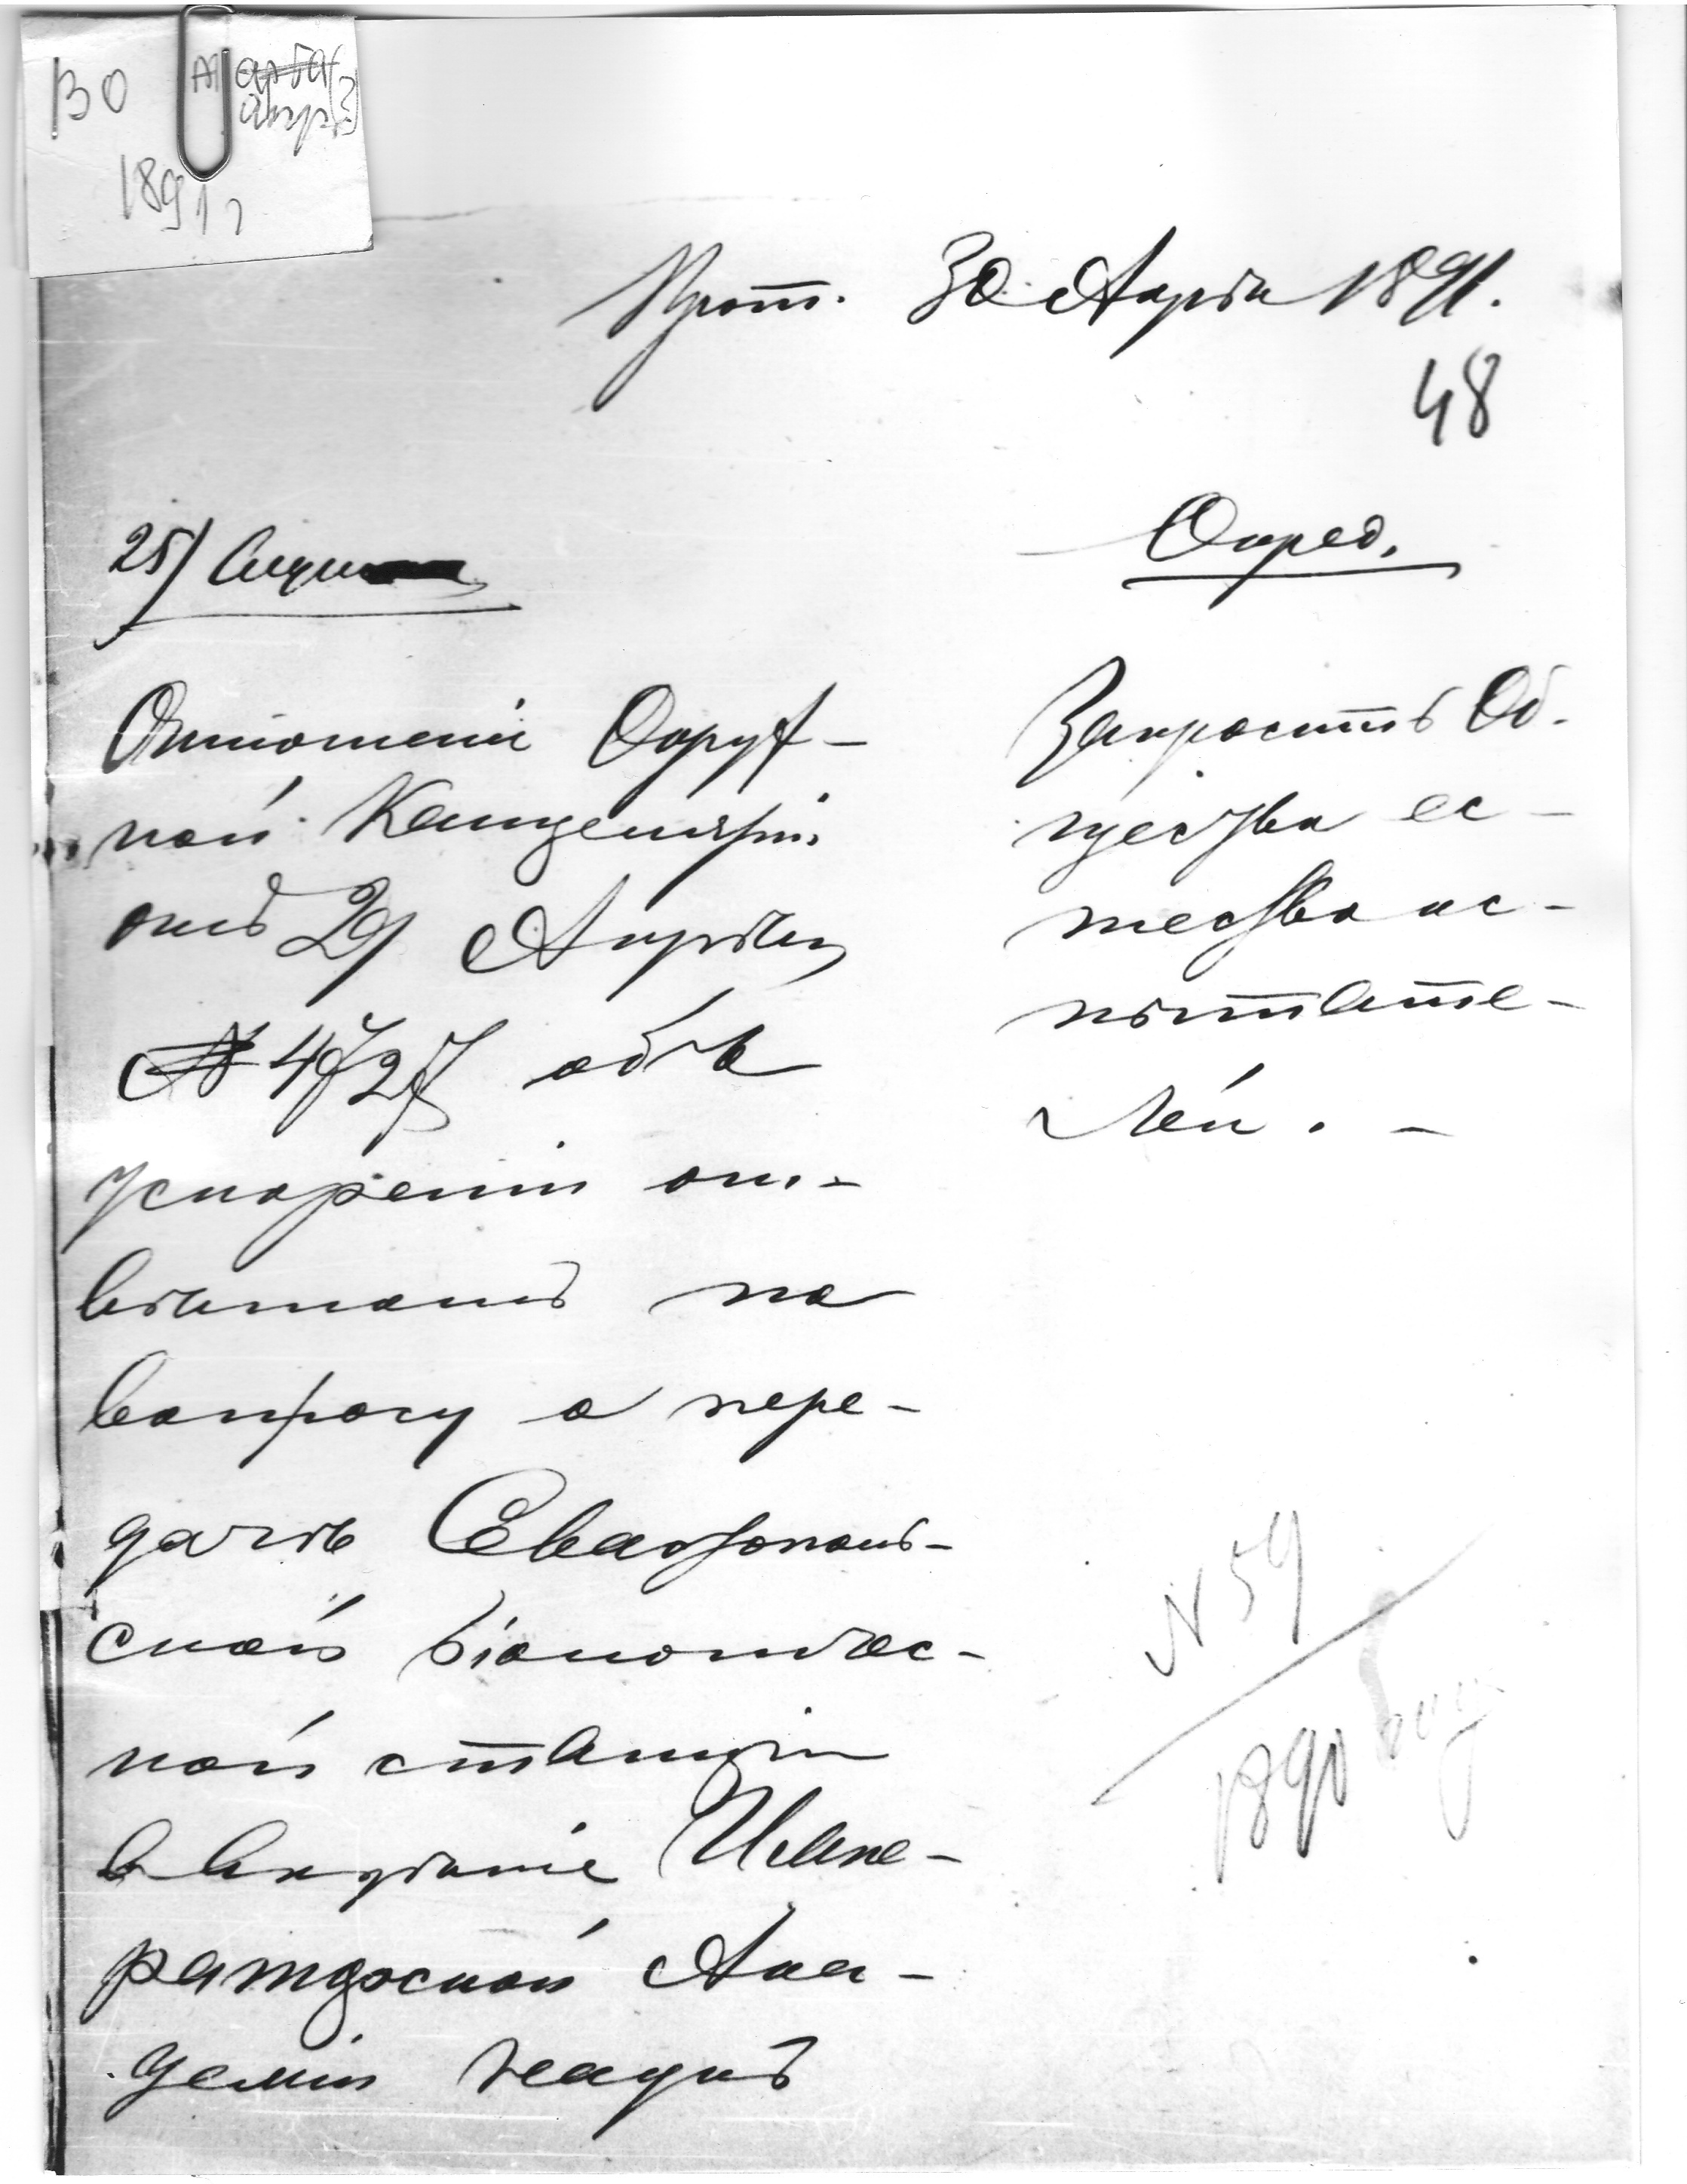 30 Марта
Апр
1891 г
Прот. 30 Апрѣля 1891.
48
25/ Слуш
Опред.
Отношенiе Окруж-
ной Канцелярiи
отъ 29 Апрѣля
№ 4727 объ
ускоренiи от-
вѣтомъ по
вопросу о пере-
дачѣ Севастополь-
ской бiологичес-
кой станцiи
в вѣдѣнiе Импе-
раторской Ака-
демiи наукъ
Запросить Об-
щества ес-
тествоис-
пытате-
лей. -
N 59
1890